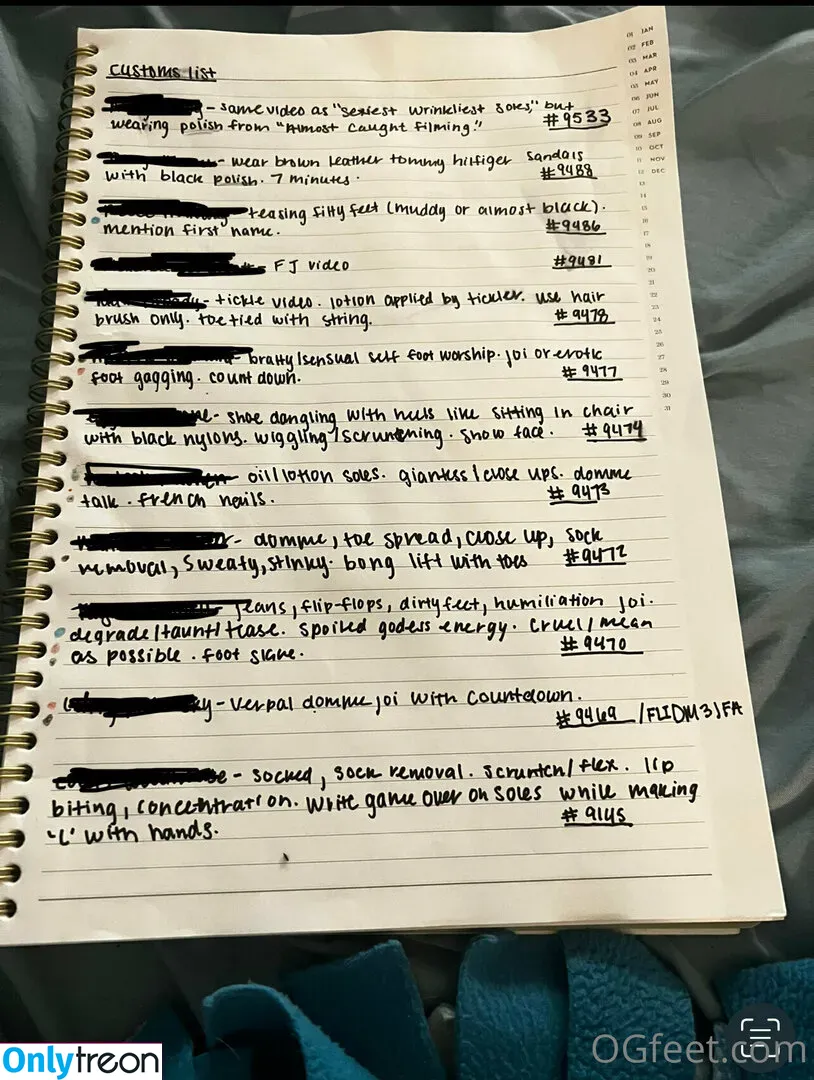 customs list
01 JAN
02 FEB
03 MAR
04 APR
05 MAY
06 JUN
07 JUL
08 AUG
09 SEP
10 OCT
11 NOV
12 DEC
13
14
15
16
17
18
19
20
21
22
23
24
25
26
27
28
29
30
31
- same video as "sexiest wrinkliest soles," but
wearing polish from "Almost caught filming." #9533
- wear brown leather tommy hilfiger sandals
with black polish. 7 minutes. #9488
- teasing filty feet (muddy or almost black).
mention first name. #9486
FJ video #9481
- tickle video. lotion applied by tickler. use hair
brush only. toe tied with string. #9478
bratty/sensual self foot worship. joi or erotic
foot gagging. count down. #9477
- shoe dangling with heels like sitting in chair
with black nylons. wiggling/scrunching. show face. #9474
oil/lotion soles. giantess/close ups. domme
talk. french nails. #9473
- domme, toe spread, close up, sock
removal, sweaty, stinky. bong lift with toes #9472
jeans, flip-flops, dirty feet, humiliation joi.
degrade/taunt/tease. spoiled godess energy. cruel/mean
as possible. foot slave. #9470
- verbal domme joi with countdown.
#9469 /FLIDM3JFA
- socked, sock removal. scrunch/flex. lip
biting, concentration. write game over on soles while making
'L' with hands. #9145
Onlytreon
OGfeet.com